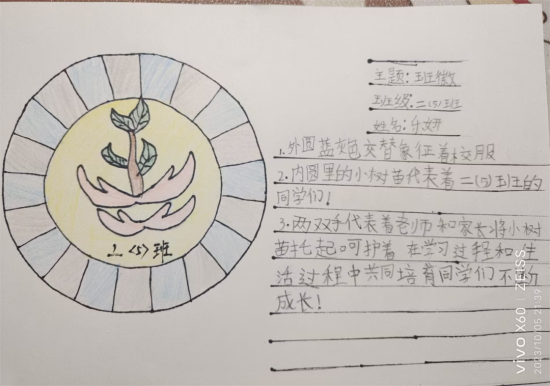 二〈5〉班
主题:班徽
班级:二(5)班
姓名:乐妍
1.外圆蓝灰色交替象征着校服
2.内圆里的小树苗代表着二(5)班的
同学们!
3.两双手代表着老师和家长将小树
苗托起呵护着 在学习过程和生
活过程中共同培育同学们不断
成长!
vivo X60 | ZEISS
2023/10/05 21:39